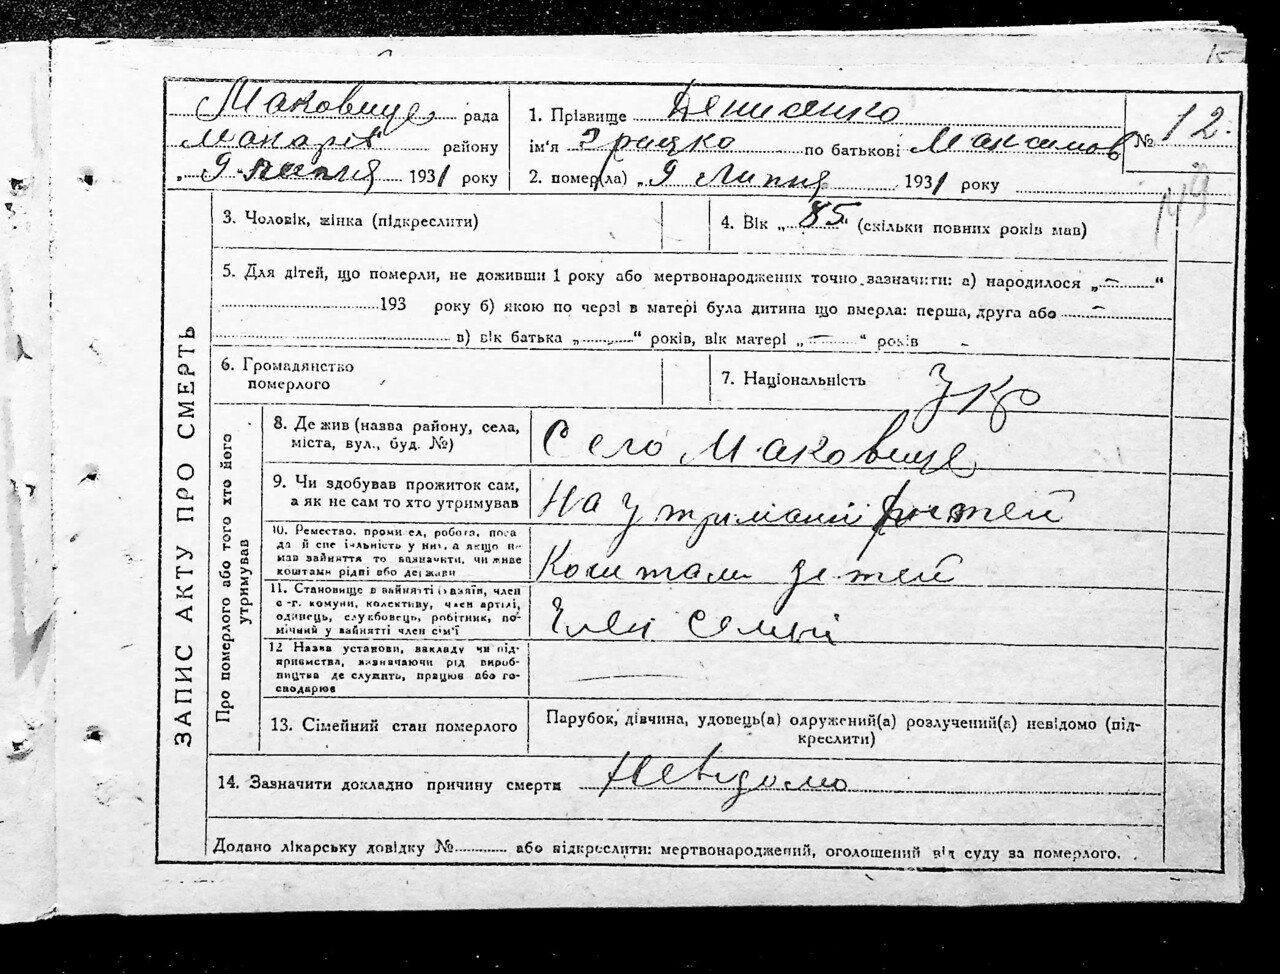 Маковище рада
Макарів району
„ 9 " липня 1931 року
1. Прізвище Денисенко
ім'я Грицко по батькові Максимов
2. помер(ла) „ 9 Липня 1931 року
№ 12.
149
15
ЗАПИС АКТУ ПРО СМЕРТЬ
3. Чоловік, жінка (підкреслити)
4. Вік „ 85 " (скільки повних років мав)
5. Для дітей, що померли, не доживши 1 року або мертвонароджених точно зазначити: а) народилося „ — “
193 року б) якою по черзі в матері була дитина що вмерла: перша, друга або —
в) вік батька „ “ років, вік матері „ — “ років
6. Громадянство
померлого
7. Національність Укр
Про померлого або того хто його
утримував
8. Де жив (назва району, села,
міста, вул., буд. №)
Село Маковище
9. Чи здобував прожиток сам,
а як не сам то хто утримував
На утриманні дітей
10. Ремество, промисел, робота, поса
да й спеціяльність у них, а якщо не
мав зайняття то зазначити, чи живе
коштами рідні або держави
Коштами детей
11. Становище в зайнятті (хазяїн, член
с-г. комуни, колективу, член артілі,
одинець, службовець, робітник, по-
мічний у зайнятті член сім'ї
Член семьї
12 Назва установи, закладу чи під-
приємства, визначаючи рід вироб-
ництва де служить, працює або го-
сподарює
13. Сімейний стан померлого
Парубок, дівчина, удовець(а) одружений(а) розлучений(а) невідомо (під-
креслити)
14. Зазначити докладно причину смерти Невідомо
Додано лікарську довідку № або відкреслити: мертвонароджений, оголошений від суду за померлого.